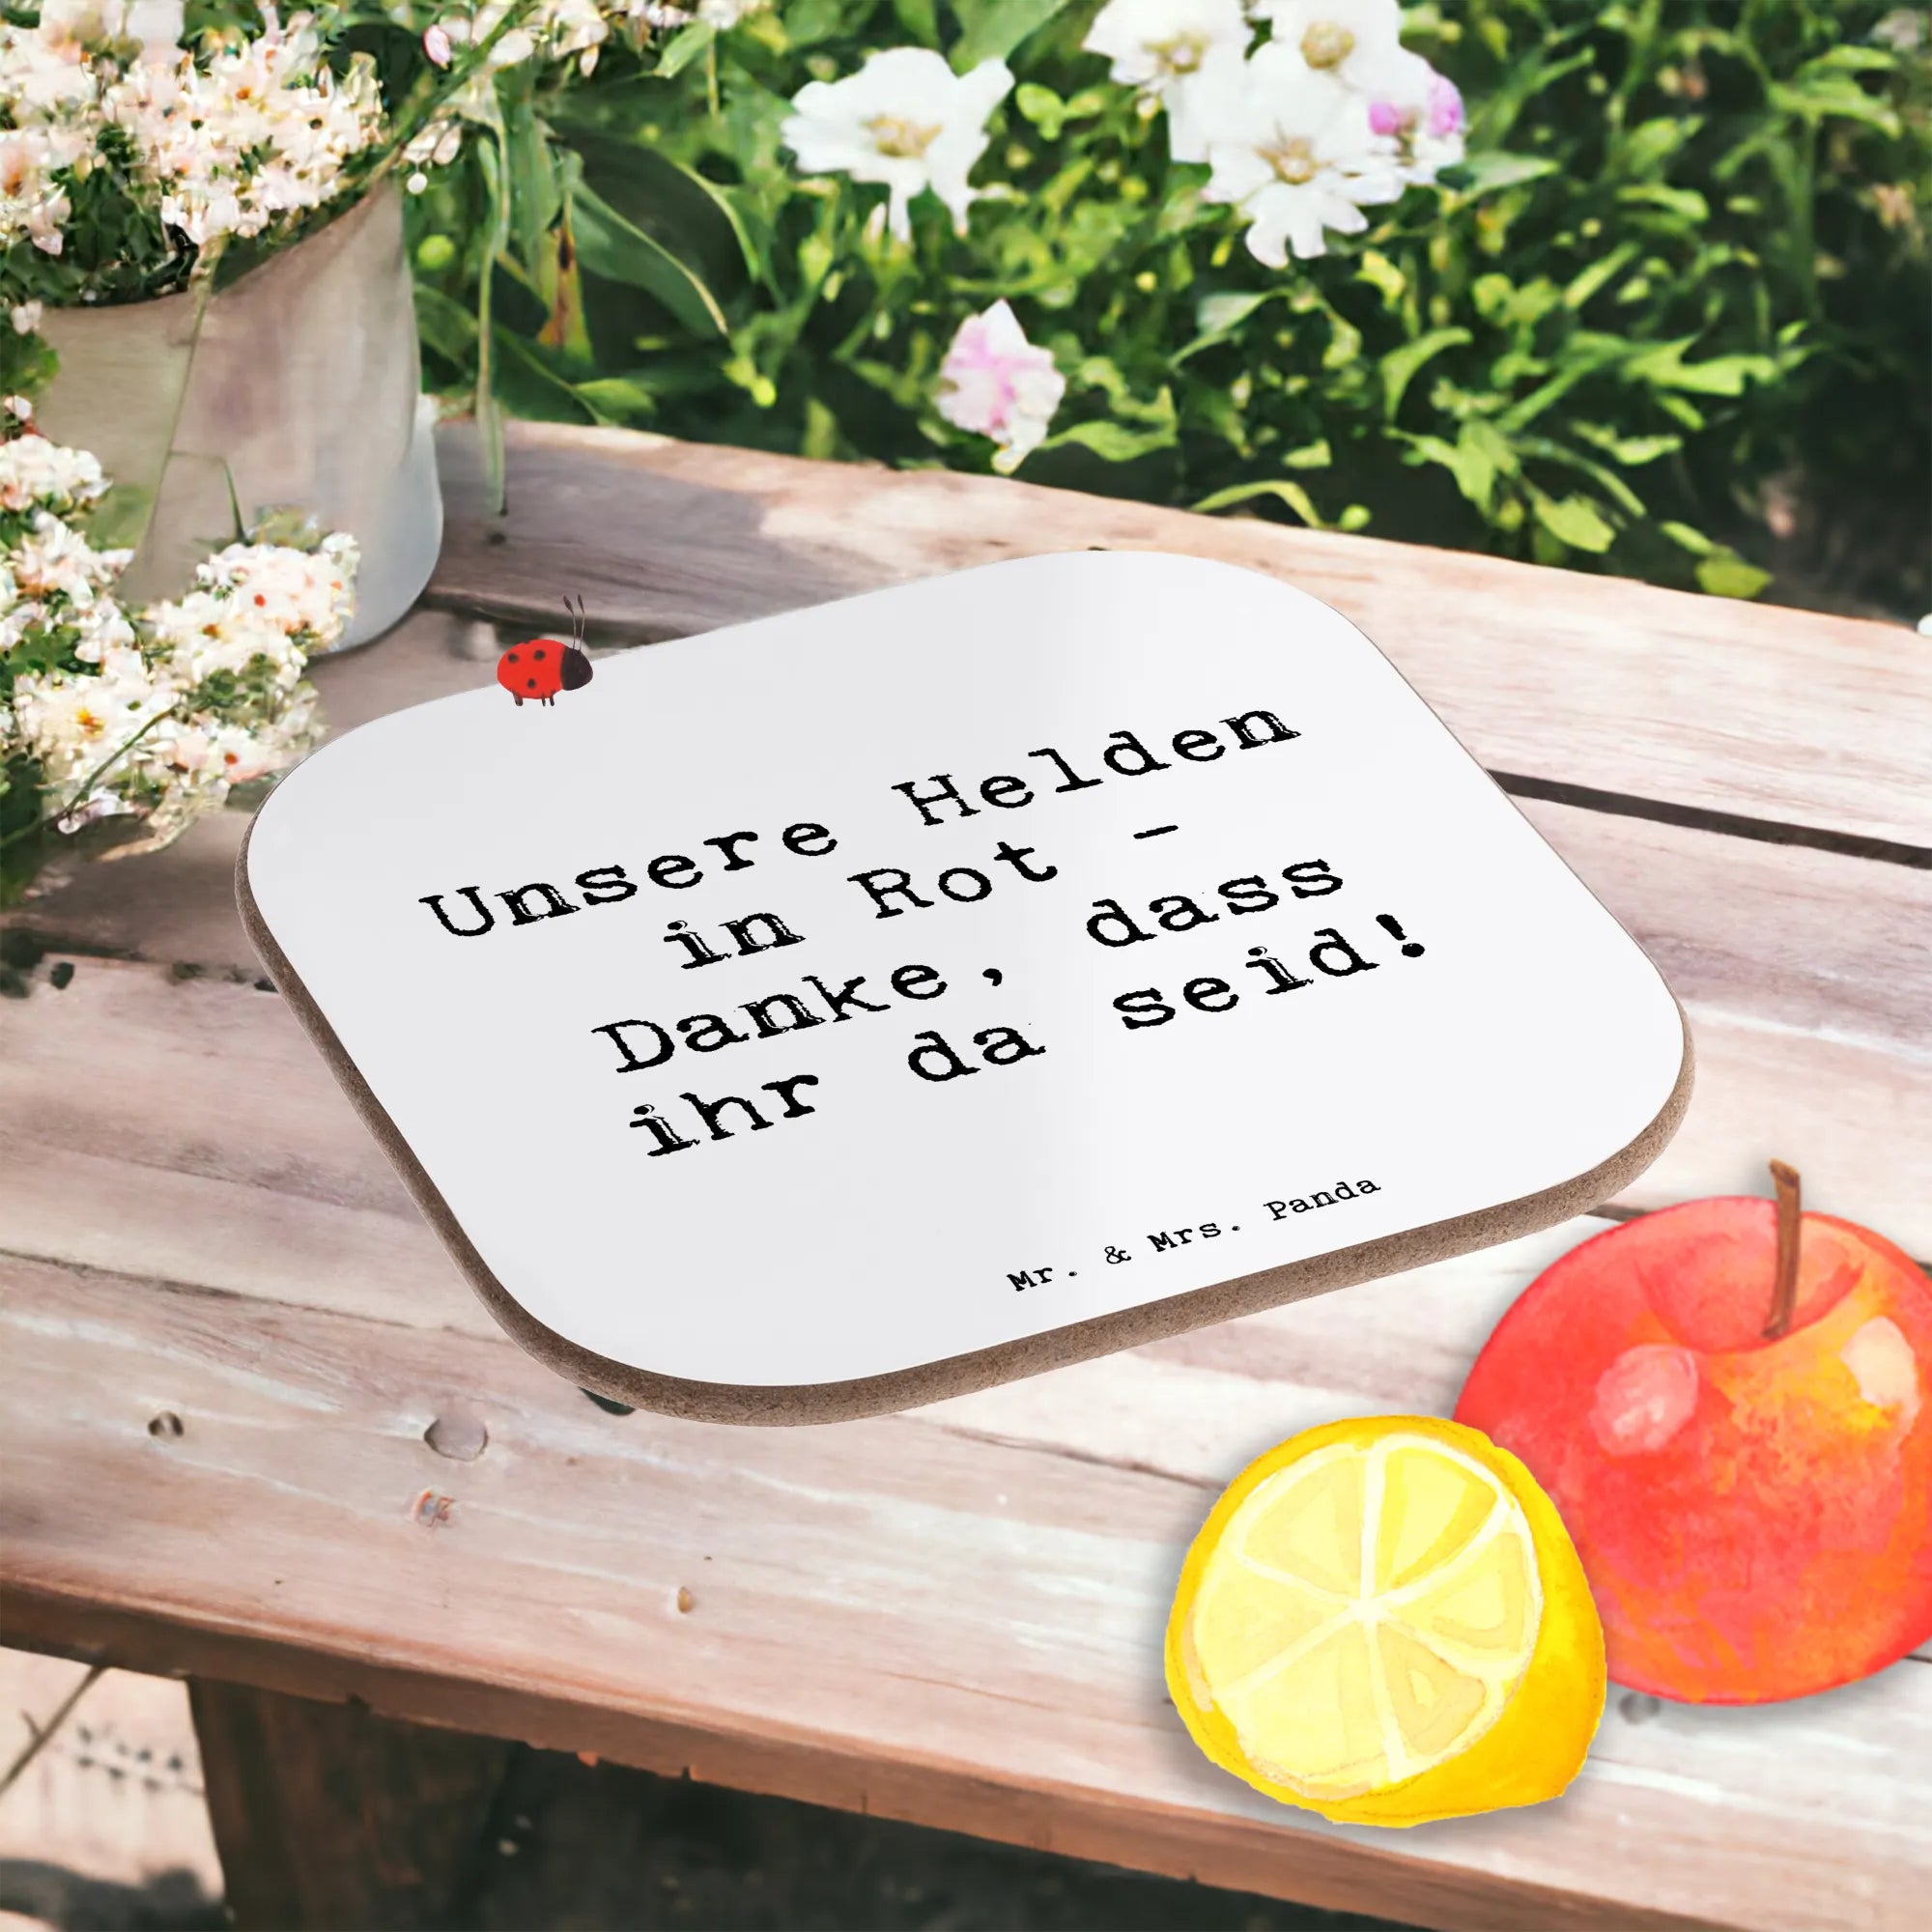 Unsere Helden
in Rot -
Danke, dass
ihr da seid!
Mr. & Mrs. Panda